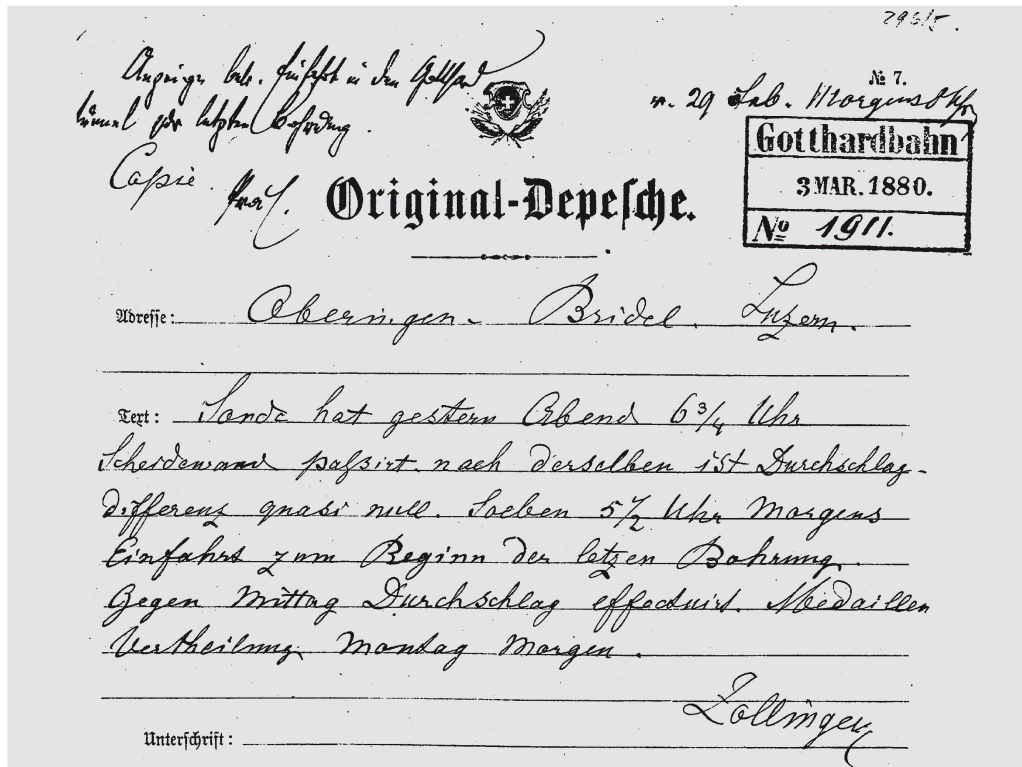 2965.
Anzeige betr. Einfahrt in den Gotthard
tunnel zur letzten Bohrung.
Copie
No 7.
v. 29 Feb. Morgens 8 Uhr
Gotthardbahn
3 MAR. 1880.
No 1911.
Original-Depesche.
Adresse: Oberingen. Bridel. Luzern.
Text: Sonde hat gestern Abend 6 3/4 Uhr
Scheidewand paßirt. nach derselben ist Durchschlag-
differenz quasi null. Soeben 5 1/2 Uhr Morgens
Einfahrt zum Beginn der letzen Bohrung.
Gegen Mittag Durchschlag effectuirt. Medaillen
Vertheilung Montag Morgen.
Zollinger
Unterschrift: